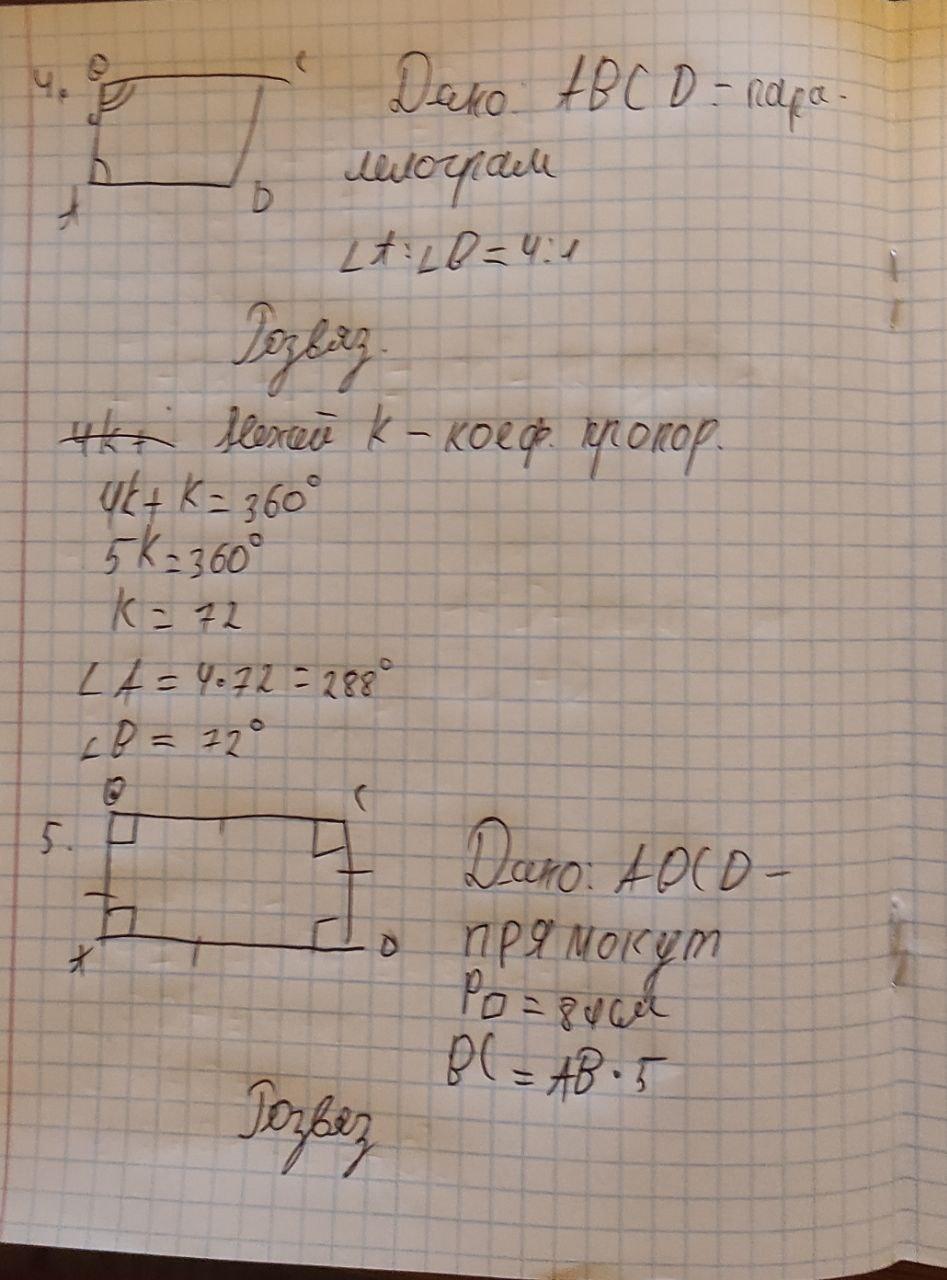 4. B C
A D
Дано: ABCD = пара-
лелограм
∠A:∠B = 4:1
Розвяз.
Нехай k – коеф. пропор.
4k + k = 360°
5k = 360°
k = 72
∠A = 4·72 = 288°
∠B = 72°
5. B C
A D
Дано: ABCD –
прямокут
P▭ = 84см
BC = AB · 5
Розвяз